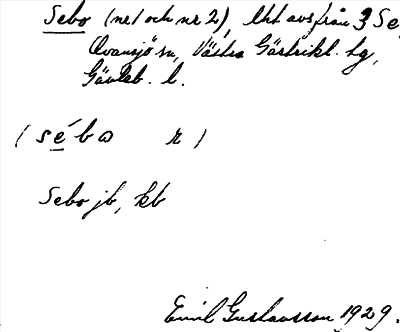 Sebo (nr 1 och nr 2), lht avs från 3 Se
Ovansjö sn, Västra Gästrikl. tg,
Gävleb. l.
(sébo r)
Sebo jb, kb
Emil Gustavsson 1929.